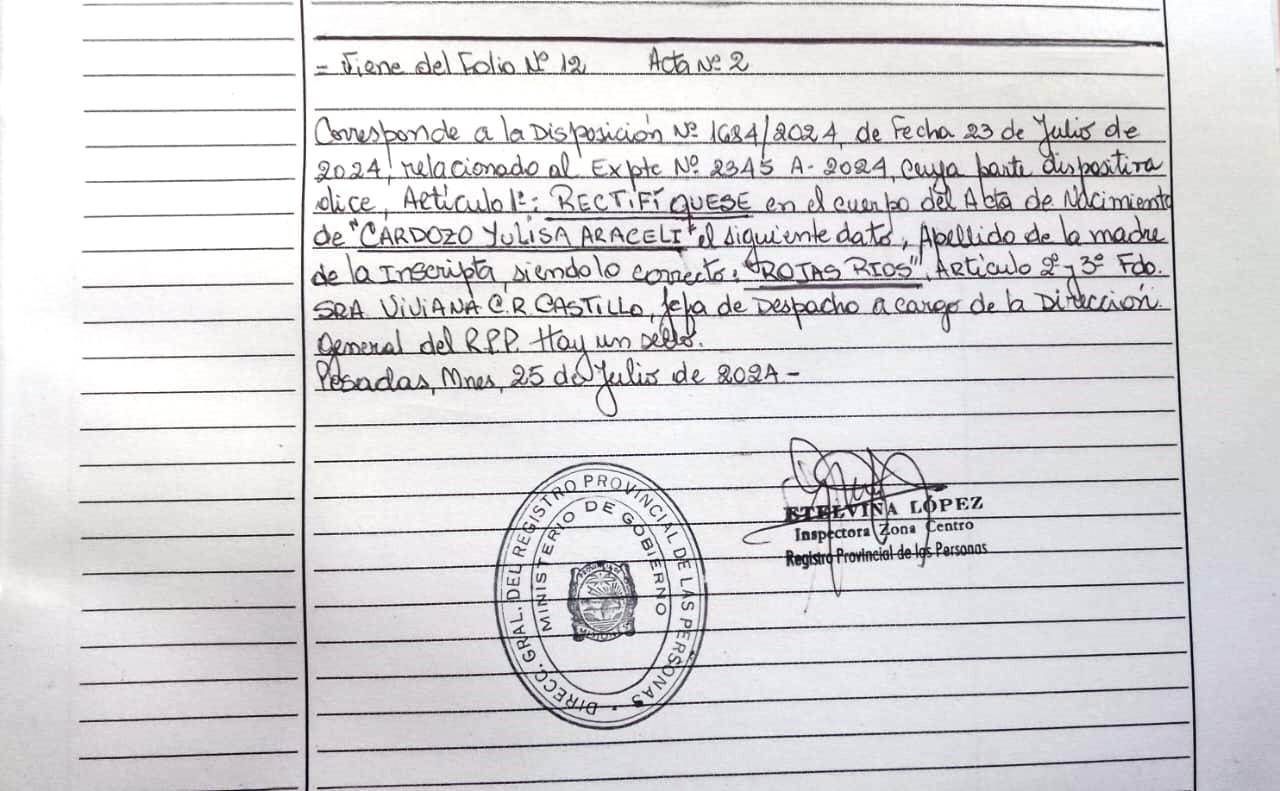 = Viene del Folio Nº 12 Acta Nº 2
Corresponde a la Disposición Nº 1684/2024, de Fecha 23 de Julio de
2024, relacionado al Expte Nº 2345 A-2024, cuya parte dispositiva
dice, Artículo 1º: RECTIFÍQUESE en el cuerpo del Acta de Nacimiento
de "CARDOZO YULISA ARACELI" el siguiente dato, Apellido de la madre
de la Inscripta, siendo lo correcto: "ROJAS RIOS", Artículo 2º y 3º Fdo.
SRA VIVIANA C.R. CASTILLO, Jefa de Despacho a cargo de la Dirección
General del R.P.P. Hay un sello.
Posadas, Mnes, 25 de Julio de 2024.-
DIRECC. GRAL. DEL REGISTRO PROVINCIAL DE LAS PERSONAS
MINISTERIO DE GOBIERNO
ETELVINA LÓPEZ
Inspectora Zona Centro
Registro Provincial de las Personas